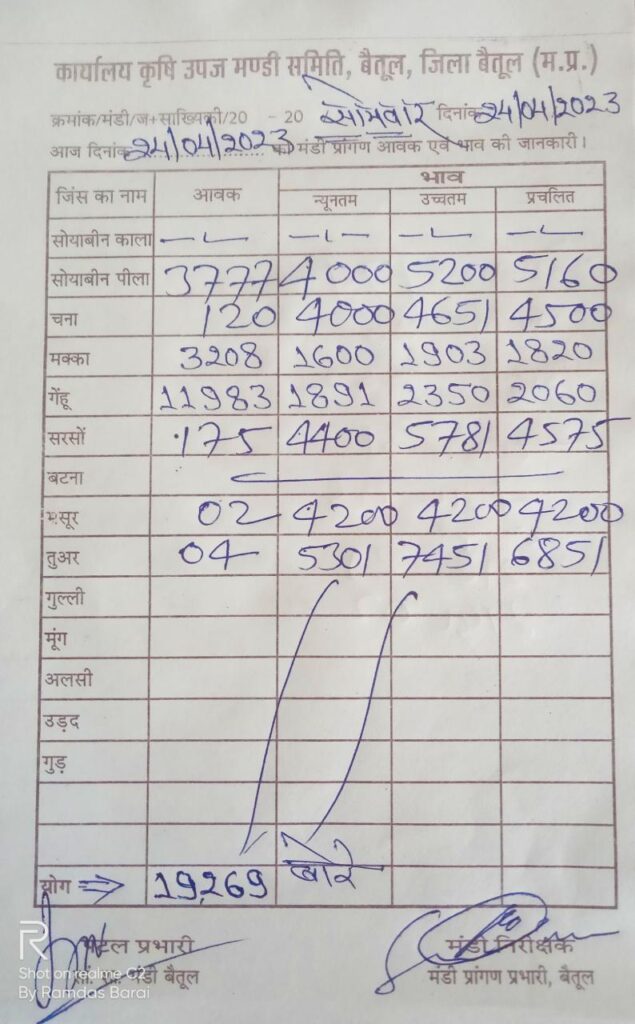 कार्यालय कृषि उपज मण्डी समिति, बैतूल, जिला बैतूल (म.प्र.)
क्रमांक/मंडी/ज+सांख्यिकी/20 - 20 सोमवार दिनांक 24/04/2023
आज दिनांक 24/04/2023 को मंडी प्रांगण आवक एवं भाव की जानकारी।
जिंस का नाम आवक भाव
न्यूनतम उच्चतम प्रचलित
सोयाबीन काला — — — —
सोयाबीन पीला 3777 4000 5200 5160
चना 120 4000 4651 4500
मक्का 3208 1600 1903 1820
गेंहू 11983 1891 2350 2060
सरसों 175 4400 5781 4575
बटना
मसूर 02 4200 4200 4200
तुअर 04 5301 7451 6851
गुल्ली
मूंग
अलसी
उड़द
गुड़
योग ⇒ 19,269 बोरे
पटल प्रभारी मंडी निरीक्षक
मंडी बैतूल मंडी प्रांगण प्रभारी, बैतूल
R
Shot on realme C2
By Ramdas Barai